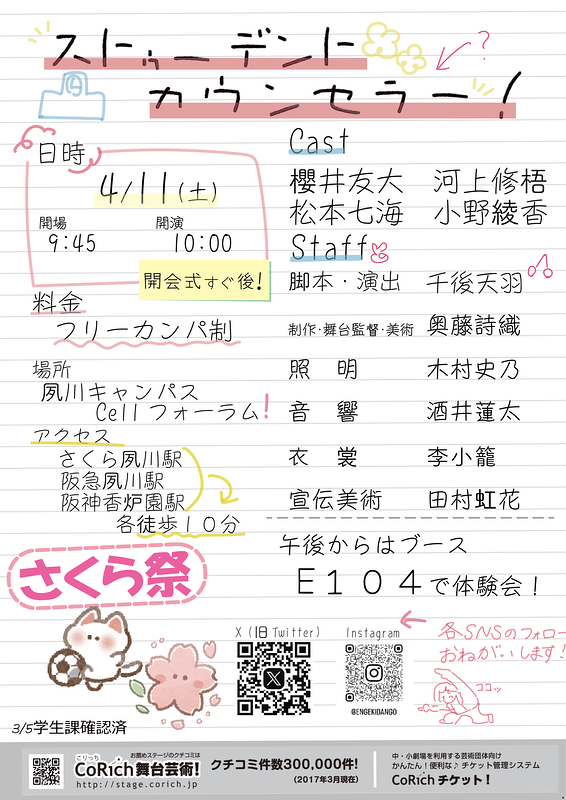 ストゥーデント
カウンセラー！
?
日時
4/11(土)
開場
9:45
開演
10:00
開会式すぐ後！
料金
フリーカンパ制
場所
夙川キャンパス
Cellフォーラム！
アクセス
さくら夙川駅
阪急夙川駅
阪神香炉園駅
各徒歩１０分
Cast
櫻井友大 河上修梧
松本七海 小野綾香
Staff
脚本・演出 千後天羽
制作・舞台監督・美術 奥藤詩織
照 明 木村史乃
音 響 酒井蓮太
衣 裳 李小籠
宣伝美術 田村虹花
午後からはブース
Ｅ１０４で体験会！
さくら祭
X(旧Twitter)
Instagram
@ENGEKIDANGO
各SNSのフォロー
おねがいします！
ココッ
3/5学生課確認済
お薦めステージのクチコミは
こりっち
CoRich舞台芸術！
http://stage.corich.jp
クチコミ件数300,000件！
（2017年3月現在）
中・小劇場を利用する芸術団体向け
かんたん！便利な♪ チケット管理システム
CoRichチケット！